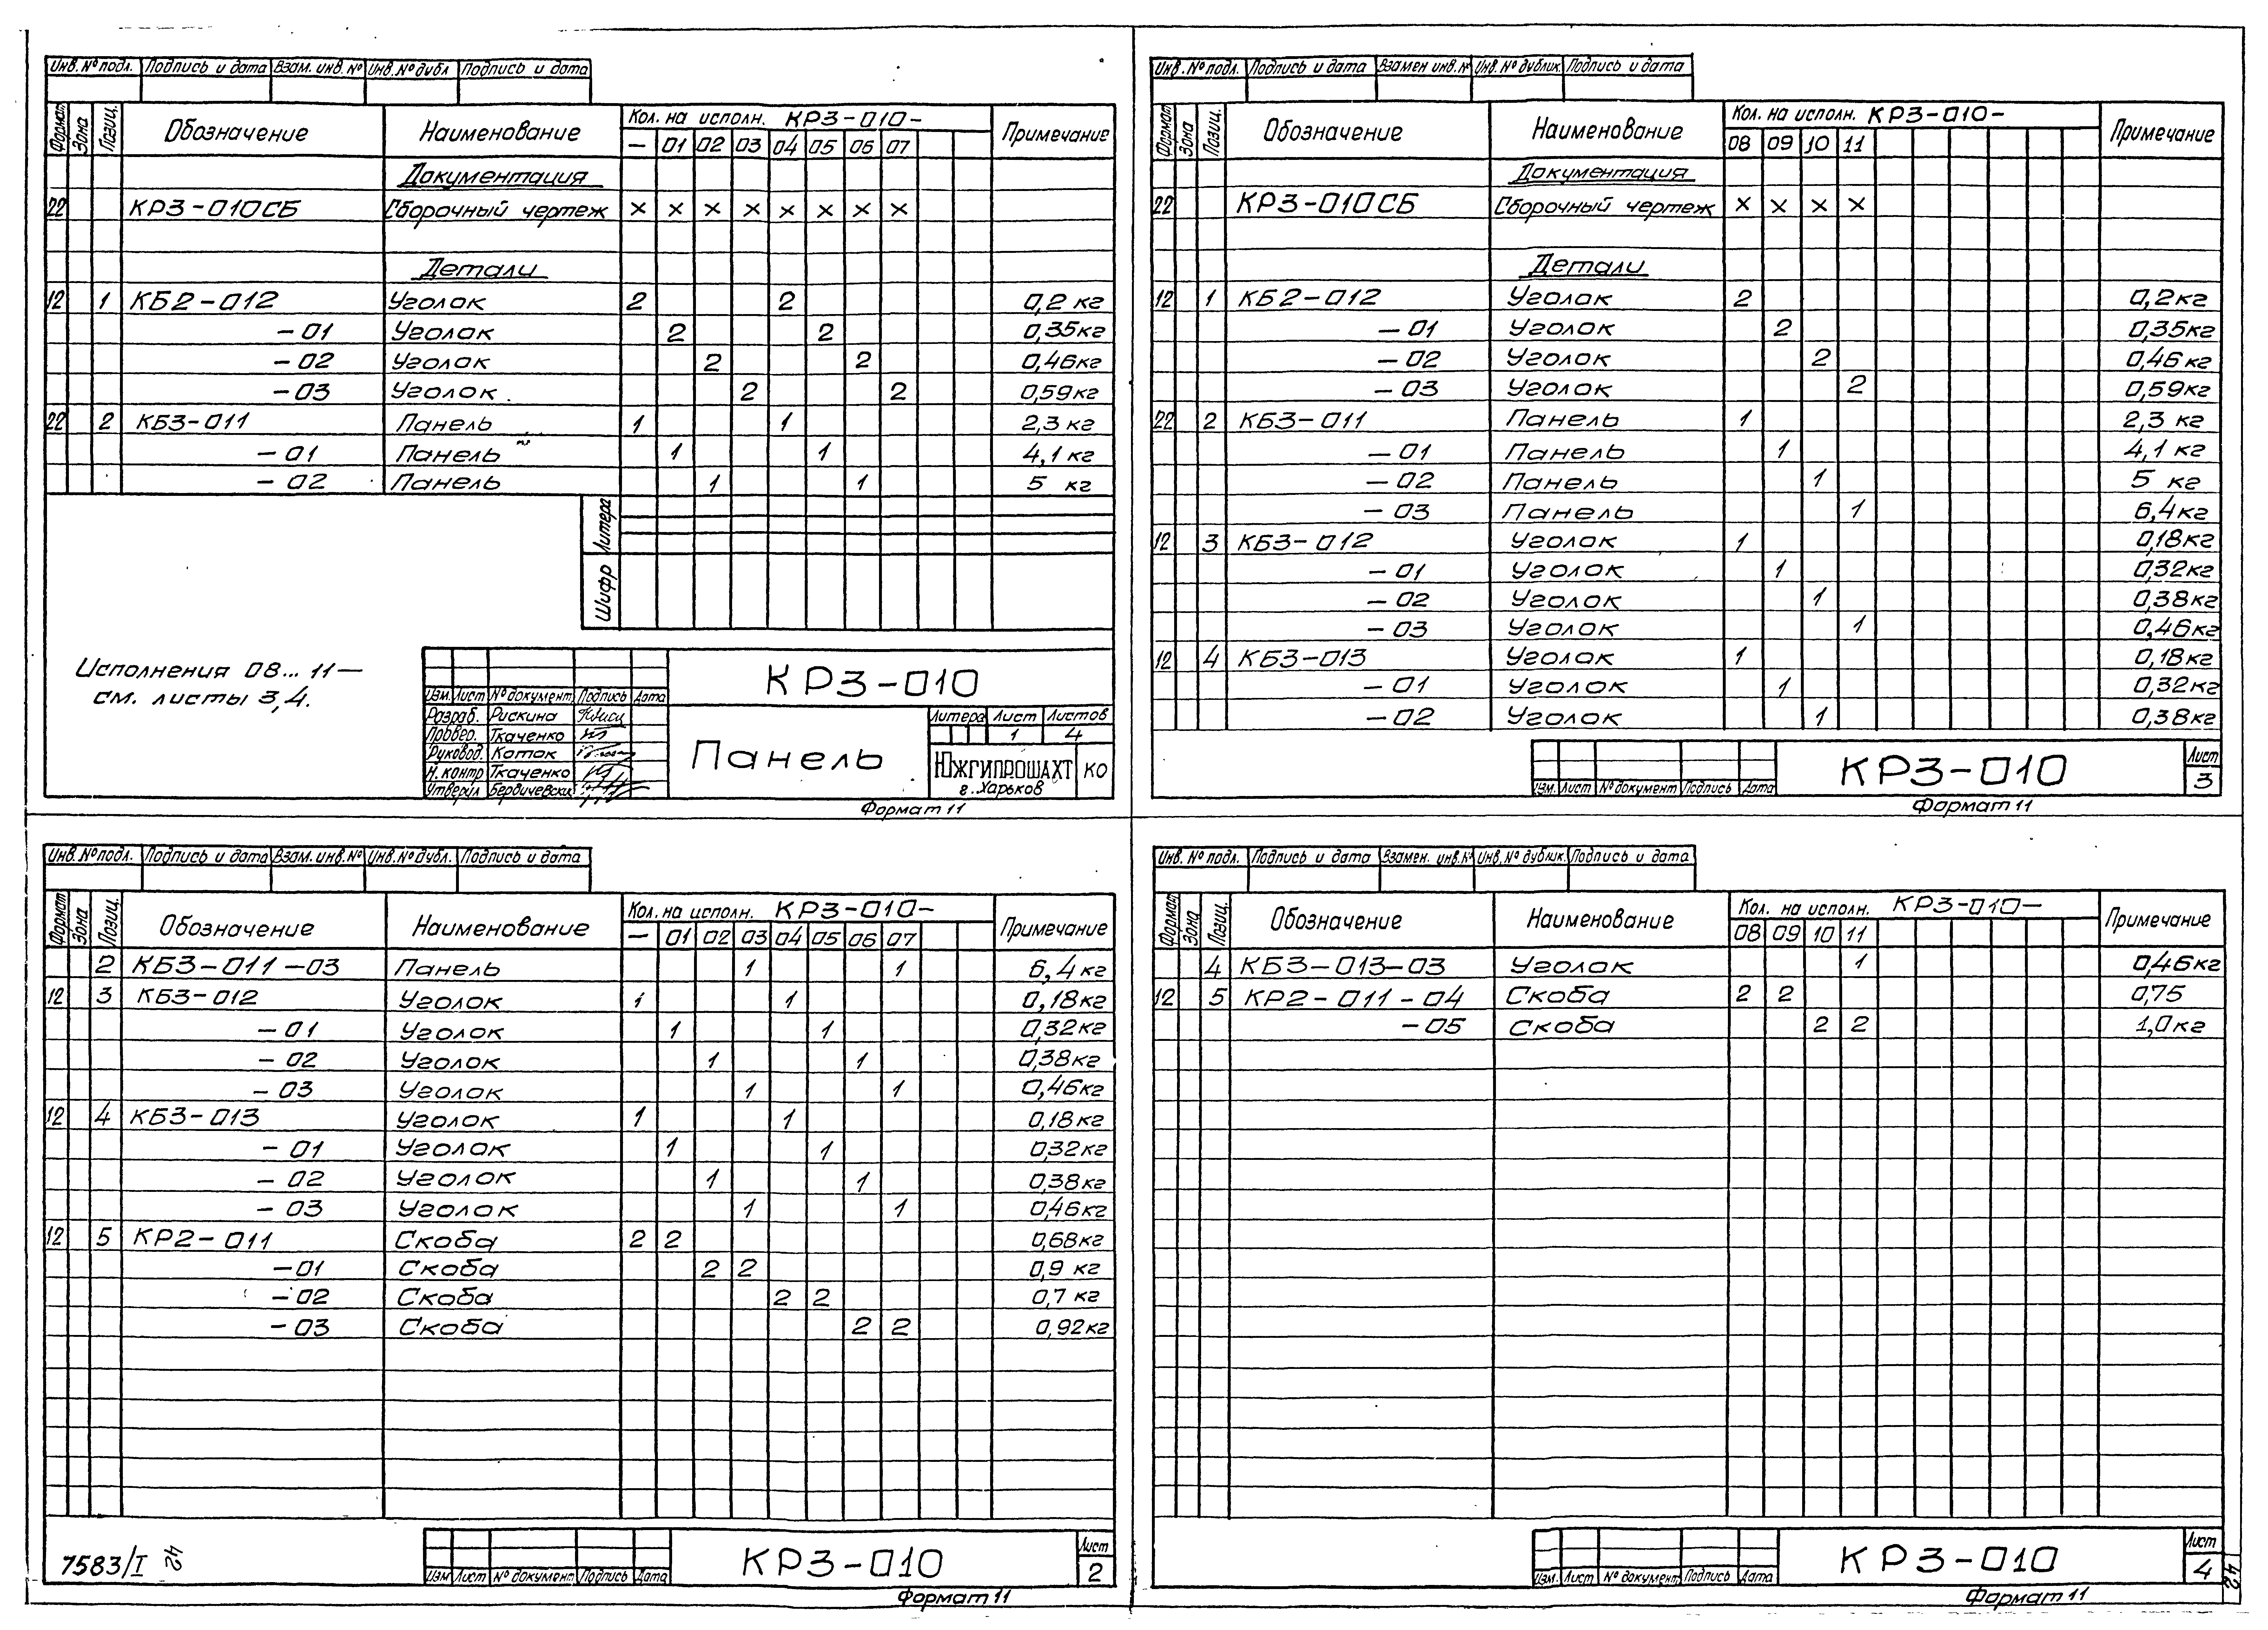 Инв. № подл. Подпись и дата Взам. инв. № Инв. № дубл Подпись и дата
Формат Зона Позиц. Обозначение Наименование Кол. на исполн. КРЗ-010- Примечание
— 01 02 03 04 05 06 07
Документация
22 КРЗ-010СБ Сборочный чертеж × × × × × × × ×
Детали
12 1 КБ2-012 Уголок 2 2 0,2 кг
-01 Уголок 2 2 0,35кг
-02 Уголок 2 2 0,46кг
-03 Уголок 2 2 0,59кг
22 2 КБЗ-011 Панель 1 1 2,3 кг
-01 Панель 1 1 4,1 кг
-02 Панель 1 1 5 кг
Литера
Шифр
Исполнения 08... 11—
см. листы 3,4.
КРЗ-010
Изм. Лист № документ Подпись Дата
Разраб. Рискина
Провер. Ткаченко
Руковод. Коток
Н. контр Ткаченко
Утверил Бердичевский
Панель
Литера Лист Листов
1 4
Южгипрошахт КО
г. Харьков
Формат 11
Инв. № подл. Подпись и дата Взамен инв. № Инв. № дублик. Подпись и дата
Формат Зона Позиц. Обозначение Наименование Кол. на исполн. КРЗ-010- Примечание
08 09 10 11
Документация
22 КРЗ-010СБ Сборочный чертеж × × × ×
Детали
12 1 КБ2-012 Уголок 2 0,2кг
-01 Уголок 2 0,35кг
-02 Уголок 2 0,46кг
-03 Уголок 2 0,59кг
22 2 КБЗ-011 Панель 1 2,3 кг
-01 Панель 1 4,1 кг
-02 Панель 1 5 кг
-03 Панель 1 6,4кг
12 3 КБЗ-012 Уголок 1 0,18кг
-01 Уголок 1 0,32кг
-02 Уголок 1 0,38кг
-03 Уголок 1 0,46кг
12 4 КБЗ-013 Уголок 1 0,18кг
-01 Уголок 1 0,32кг
-02 Уголок 1 0,38кг
Изм. Лист № документ Подпись Дата
КРЗ-010
Лист
3
Формат 11
Инв. № подл. Подпись и дата Взам. инв. № Инв. № дубл. Подпись и дата
Формат Зона Позиц. Обозначение Наименование Кол. на исполн. КРЗ-010- Примечание
— 01 02 03 04 05 06 07
2 КБЗ-011-03 Панель 1 1 6,4кг
12 3 КБЗ-012 Уголок 1 1 0,18кг
-01 Уголок 1 1 0,32кг
-02 Уголок 1 1 0,38кг
-03 Уголок 1 1 0,46кг
12 4 КБЗ-013 Уголок 1 1 0,18кг
-01 Уголок 1 1 0,32кг
-02 Уголок 1 1 0,38кг
-03 Уголок 1 1 0,46кг
12 5 КР2-011 Скоба 2 2 0,68кг
-01 Скоба 2 2 0,9 кг
-02 Скоба 2 2 0,7 кг
-03 Скоба 2 2 0,92кг
7583/I 42
Изм Лист № документ Подпись Дата
КРЗ-010
Лист
2
Формат 11
Инв. № подл. Подпись и дата Взамен. инв. № Инв. № дублик. Подпись и дата
Формат Зона Позиц. Обозначение Наименование Кол. на исполн. КРЗ-010- Примечание
08 09 10 11
4 КБЗ-013-03 Уголок 1 0,46кг
12 5 КР2-011-04 Скоба 2 2 0,75
-05 Скоба 2 2 1,0кг
Изм. Лист № документ Подпись Дата
КРЗ-010
Лист
4
42
Формат 11